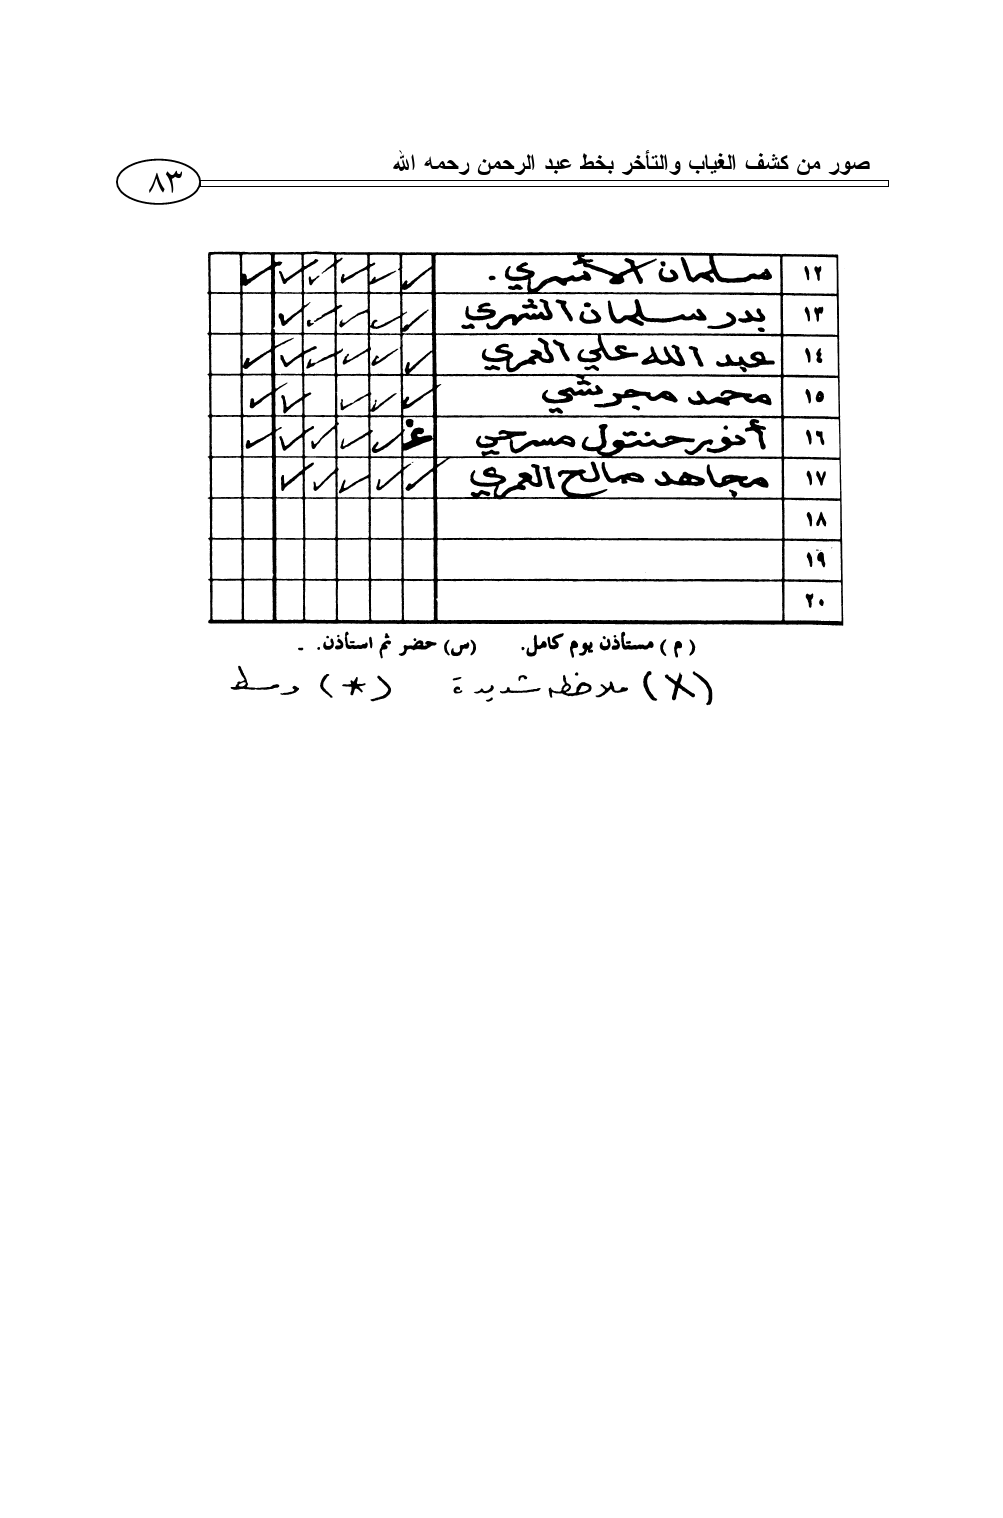 صور من كشف الغياب والتأخر بخط عبد الرحمن رحمه الله
٨٣
١٢ سلمان الأسمري . ✓ ✓ ✓ ✓ ✓ ✓
١٣ بدر سلمان الشهري ✓ ✓ ✓ ✓ ✓
١٤ عبد الله علي العمري ✓ ✓ ✓ ✓ ✓ ✓
١٥ محمد مجرشي ✓ ✓ ✓ ✓ ✓
١٦ أنور حنتول مسرحي غ ✓ ✓ ✓ ✓ ✓
١٧ مجاهد صالح العمري ✓ ✓ ✓ ✓ ✓
١٨
١٩
٢٠
( م ) مستأذن يوم كامل. (س) حضر ثم استأذن. -
(X) ملاحظه شديدة (*) وسط